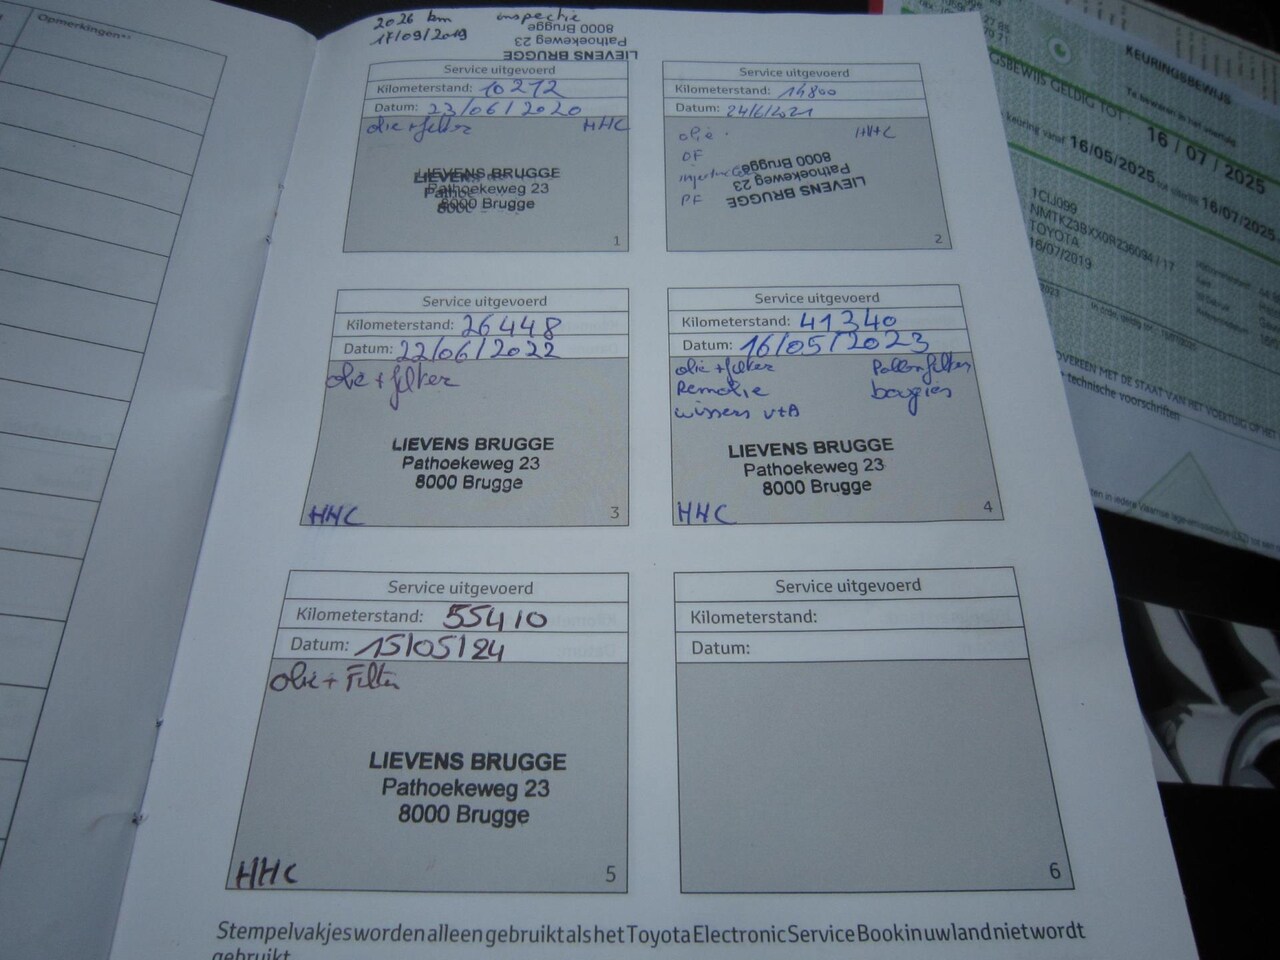 Opmerkingen**
2026 km inspectie
17/09/2019
LIEVENS BRUGGE
Pathoekeweg 23
8000 Brugge
Service uitgevoerd
Kilometerstand: 10212
Datum: 23/06/2020
olie + filter HHC
LIEVENS BRUGGE
Pathoekeweg 23
8000 Brugge
1
Service uitgevoerd
Kilometerstand: 14800
Datum: 24/6/2021
olie HHC
OF
PF
LIEVENS BRUGGE
Pathoekeweg 23
8000 Brugge
2
Service uitgevoerd
Kilometerstand: 26448
Datum: 22/06/2022
olie + filter
LIEVENS BRUGGE
Pathoekeweg 23
8000 Brugge
HHC
3
Service uitgevoerd
Kilometerstand: 41340
Datum: 16/05/2023
olie + filter Pollenfilter
Remolie bougies
wissers v+A
LIEVENS BRUGGE
Pathoekeweg 23
8000 Brugge
HHC
4
Service uitgevoerd
Kilometerstand: 55410
Datum: 15/05/24
Olie + Filter
LIEVENS BRUGGE
Pathoekeweg 23
8000 Brugge
HHC
5
Service uitgevoerd
Kilometerstand:
Datum:
6
Stempelvakjes worden alleen gebruikt als het Toyota Electronic Service Book in uw land niet wordt
gebruikt
KEURINGSBEWIJS
GSBEWIJS GELDIG TOT : 16 / 07 / 2025
keuring vanaf 16/05/2025 tot uiterlijk 16/07/2025
1CIJ099
NMTKZ3BXX0R236094 / 17
TOYOTA
16/07/2019
OVEREEN MET DE STAAT VAN HET VOERTUIG OP HET
technische voorschriften